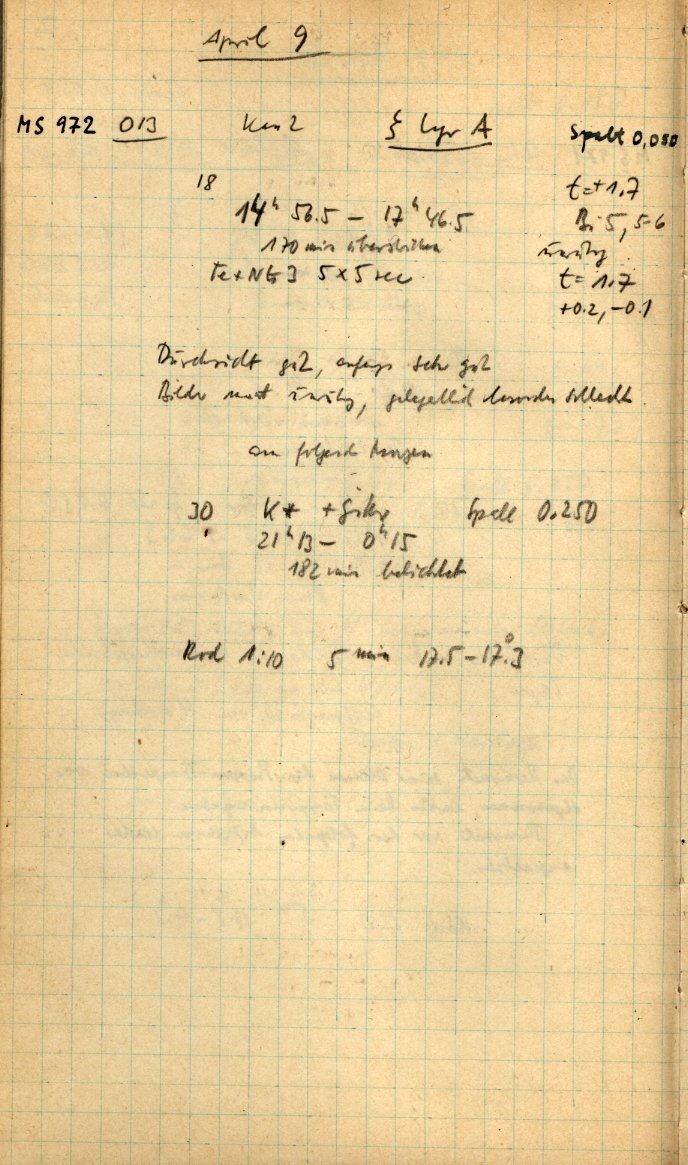 April 9
MS 972 013 Kam 2 ξ Lyr A Spalt 0,050
18 t=+1.7
14h 56.5 – 17h 46.5 Bi 5, 5-6
170 min unruhig
Fe+ 3 5 x 5 sec t= 1.7
+0.2, -0.1
Durchsicht gut, anfangs sehr gut
Bilder meist unruhig, gelegentlich besonders schlecht
am folgend Morgen
30 K* + Spalt 0.250
21h 13 – 0h 15
182 min belichtet
Rod 1:10 5 min 17.5 – 17°.3